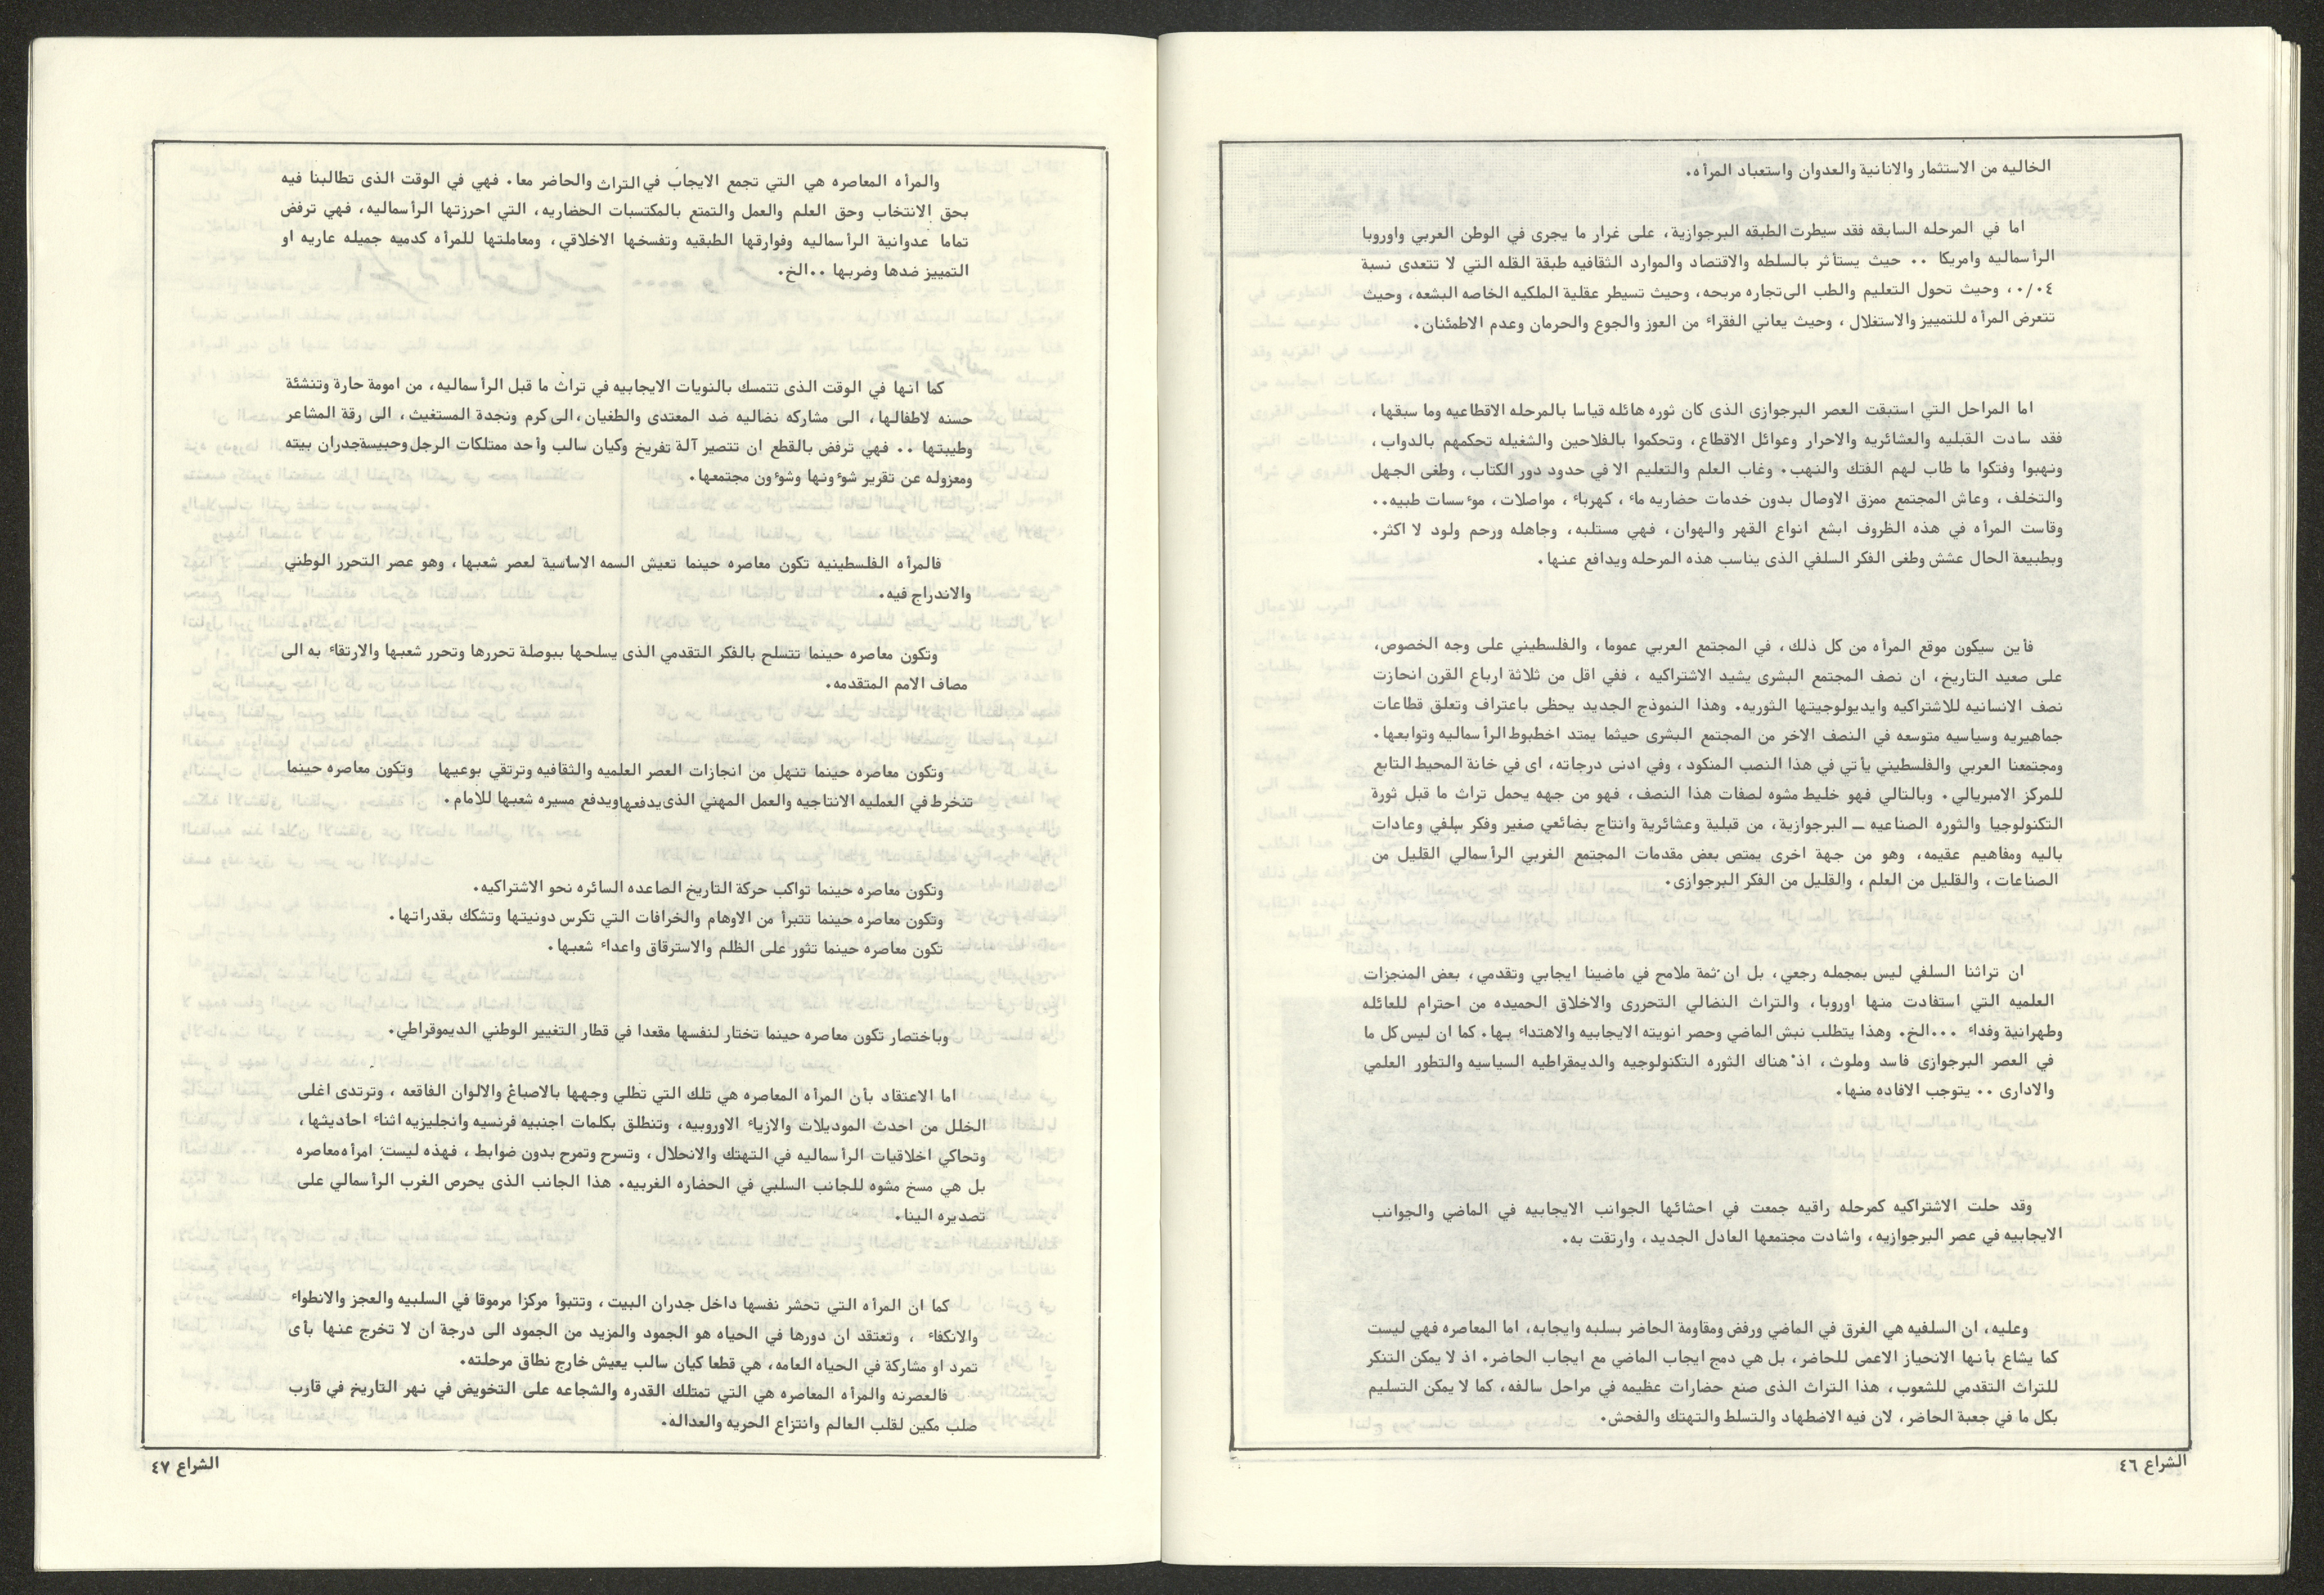 الخاليه من الاستثمار والانانية والعدوان واستعباد المرأه.
اما في المرحله السابقه فقد سيطرت الطبقه البرجوازية، على غرار ما يجرى في الوطن العربي واوروبا
الرأسماليه وامريكا .. حيث يستأثر بالسلطه والاقتصاد والموارد الثقافيه طبقة القله التي لا تتعدى نسبة
٠/٠٤، وحيث تحول التعليم والطب الى تجاره مربحه، وحيث تسيطر عقلية الملكيه الخاصه البشعه، وحيث
تتعرض المرأه للتمييز والاستغلال، وحيث يعاني الفقراء من العوز والجوع والحرمان وعدم الاطمئنان.
اما المراحل التي استبقت العصر البرجوازى الذى كان ثوره هائله قياسا بالمرحله الاقطاعيه وما سبقها،
فقد سادت القبليه والعشائريه والاحرار وعوائل الاقطاع، وتحكموا بالفلاحين والشغيله تحكمهم بالدواب،
ونهبوا وفتكوا ما طاب لهم الفتك والنهب. وغاب العلم والتعليم الا في حدود دور الكتاب، وطغى الجهل
والتخلف، وعاش المجتمع ممزق الاوصال بدون خدمات حضاريه ماء، كهرباء، مواصلات، موءسسات طبيه..
وقاست المرأه في هذه الظروف ابشع انواع القهر والهوان، فهي مستلبه، وجاهله ورحم ولود لا اكثر.
وبطبيعة الحال عشش وطغى الفكر السلفي الذى يناسب هذه المرحله ويدافع عنها.
فأين سيكون موقع المرأه من كل ذلك، في المجتمع العربي عموما، والفلسطيني على وجه الخصوص،
على صعيد التاريخ، ان نصف المجتمع البشرى يشيد الاشتراكيه ، ففي اقل من ثلاثة ارباع القرن انحازت
نصف الانسانيه للاشتراكيه وايديولوجيتها الثوريه. وهذا النموذج الجديد يحظى باعتراف وتعلق قطاعات
جماهيريه وسياسيه متوسعه في النصف الاخر من المجتمع البشرى حيثما يمتد اخطبوط الرأسماليه وتوابعها.
ومجتمعنا العربي والفلسطيني يأتي في هذا النصب المنكود، وفي ادنى درجاته، اى في خانة المحيط التابع
للمركز الامبريالي. وبالتالي فهو خليط مشوه لصفات هذا النصف، فهو من جهه يحمل تراث ما قبل ثورة
التكنولوجيا والثوره الصناعيه ــ البرجوازية، من قبلية وعشائرية وانتاج بضائعي صغير وفكر سلفي وعادات
باليه ومفاهيم عقيمه، وهو من جهة اخرى يمتص بعض مقدمات المجتمع الغربي الرأسمالي القليل من
الصناعات، والقليل من العلم، والقليل من الفكر البرجوازى.
ان تراثنا السلفي ليس بمجمله رجعي، بل ان ثمة ملامح في ماضينا ايجابي وتقدمي، بعض المنجزات
العلميه التي استفادت منها اوروبا، والتراث النضالي التحررى والاخلاق الحميده من احترام للعائله
وطهرانية وفداء ...الخ. وهذا يتطلب نبش الماضي وحصر انويته الايجابيه والاهتداء بها. كما ان ليس كل ما
في العصر البرجوازى فاسد وملوث، اذ هناك الثوره التكنولوجيه والديمقراطيه السياسيه والتطور العلمي
والادارى .. يتوجب الافاده منها.
وقد حلت الاشتراكيه كمرحله راقيه جمعت في احشائها الجوانب الايجابيه في الماضي والجوانب
الايجابيه في عصر البرجوازيه، واشادت مجتمعها العادل الجديد، وارتقت به.
وعليه، ان السلفيه هي الغرق في الماضي ورفض ومقاومة الحاضر بسلبه وايجابه، اما المعاصره فهي ليست
كما يشاع بأنها الانحياز الاعمى للحاضر، بل هي دمج ايجاب الماضي مع ايجاب الحاضر. اذ لا يمكن التنكر
للتراث التقدمي للشعوب، هذا التراث الذى صنع حضارات عظيمه في مراحل سالفه، كما لا يمكن التسليم
بكل ما في جعبة الحاضر، لان فيه الاضطهاد والتسلط والتهتك والفحش.
الشراع ٤٦
والمرأه المعاصره هي التي تجمع الايجاب في التراث والحاضر معا. فهي في الوقت الذى تطالبنا فيه
بحق الانتخاب وحق العلم والعمل والتمتع بالمكتسبات الحضاريه، التي احرزتها الرأسماليه، فهي ترفض
تماما عدوانية الرأسماليه وفوارقها الطبقيه وتفسخها الاخلاقي، ومعاملتها للمرأه كدميه جميله عاريه او
التمييز ضدها وضربها ..الخ.
كما انها في الوقت الذى تتمسك بالنويات الايجابيه في تراث ما قبل الرأسماليه، من امومة حارة وتنشئة
حسنه لاطفالها، الى مشاركه نضاليه ضد المعتدى والطغيان، الى كرم ونجدة المستغيث، الى رقة المشاعر
وطيبتها .. فهي ترفض بالقطع ان تتصير آلة تفريخ وكيان سالب وأحد ممتلكات الرجل وحبيسة جدران بيته
ومعزوله عن تقرير شوءونها وشوءون مجتمعها.
فالمرأه الفلسطينيه تكون معاصره حينما تعيش السمه الاساسية لعصر شعبها، وهو عصر التحرر الوطني
والاندراج فيه.
وتكون معاصره حينما تتسلح بالفكر التقدمي الذى يسلحها ببوصلة تحررها وتحرر شعبها والارتقاء به الى
مصاف الامم المتقدمه.
وتكون معاصره حينما تنهل من انجازات العصر العلميه والثقافيه وترتقي بوعيها وتكون معاصره حينما
تنخرط في العمليه الانتاجيه والعمل المهني الذى يدفعها ويدفع مسيره شعبها للامام.
وتكون معاصره حينما تواكب حركة التاريخ الصاعده السائره نحو الاشتراكيه.
وتكون معاصره حينما تتبرأ من الاوهام والخرافات التي تكرس دونيتها وتشكك بقدراتها.
تكون معاصره حينما تثور على الظلم والاسترقاق واعداء شعبها.
وباختصار تكون معاصره حينما تختار لنفسها مقعدا في قطار التغيير الوطني الديموقراطي.
اما الاعتقاد بأن المرأه المعاصره هي تلك التي تطلي وجهها بالاصباغ والالوان الفاقعه ، وترتدى اغلى
الخلل من احدث الموديلات والازياء الاوروبيه، وتنطلق بكلمات اجنبيه فرنسيه وانجليزيه اثناء احاديثها،
وتحاكي اخلاقيات الرأسماليه في التهتك والانحلال، وتسرح وتمرح بدون ضوابط ، فهذه ليست امرأه معاصره
بل هي مسخ مشوه للجانب السلبي في الحضاره الغربيه. هذا الجانب الذى يحرص الغرب الرأسمالي على
تصديره الينا.
كما ان المرأه التي تحشر نفسها داخل جدران البيت، وتتبوأ مركزا مرموقا في السلبيه والعجز والانطواء
والانكفاء ، وتعتقد ان دورها في الحياه هو الجمود والمزيد من الجمود الى درجة ان لا تخرج عنها بأى
تمرد او مشاركة في الحياه العامه، هي قطعا كيان سالب يعيش خارج نطاق مرحلته.
فالعصرنه والمرأه المعاصره هي التي تمتلك القدره والشجاعه على التخويض في نهر التاريخ في قارب
صلب مكين لقلب العالم وانتزاع الحريه والعداله.
الشراع ٤٧